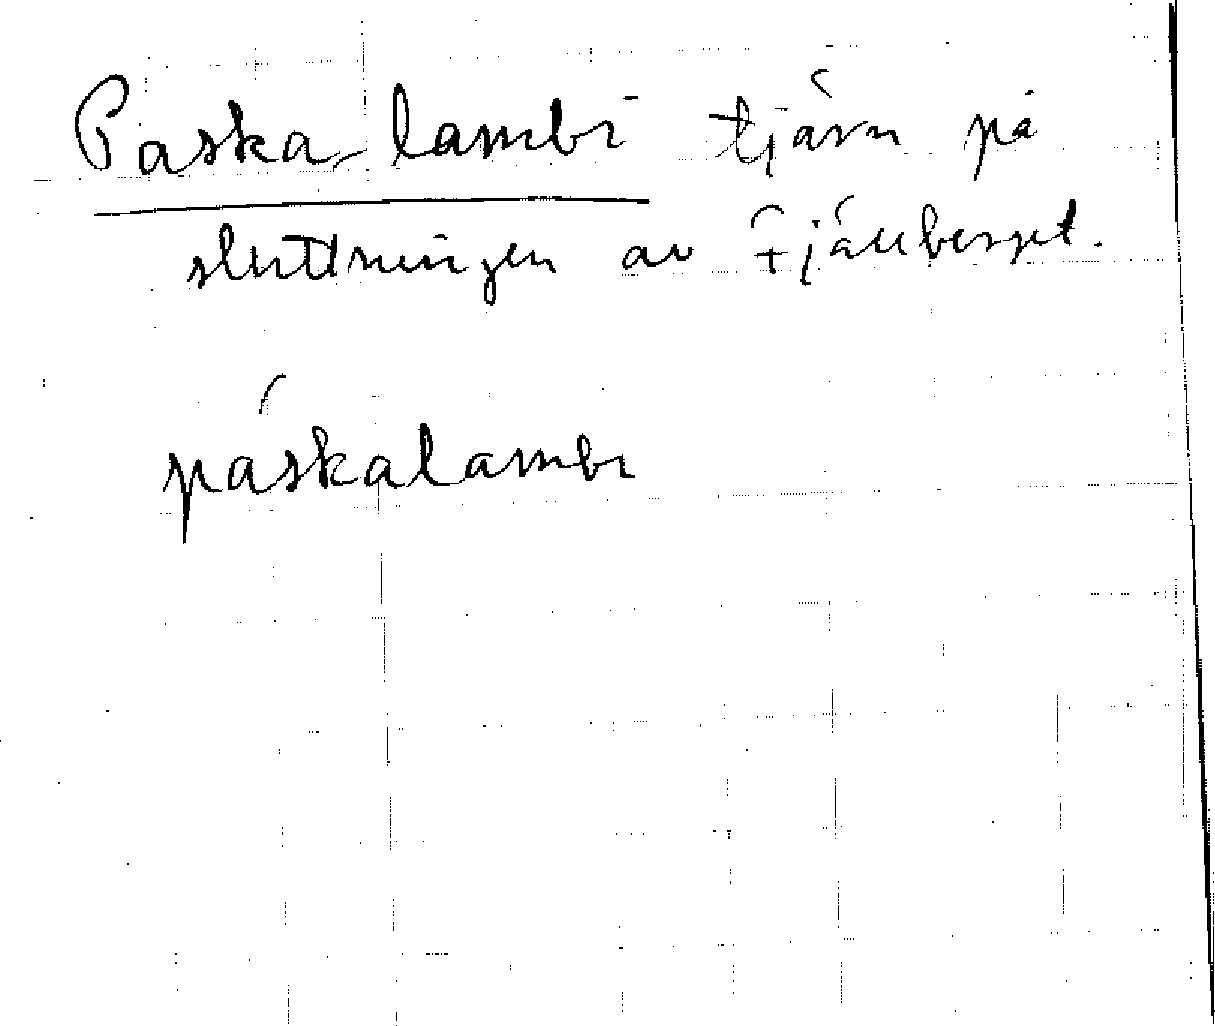 Paska-lambi tjärn på
sluttningen av Fjällberget.
páskalambi